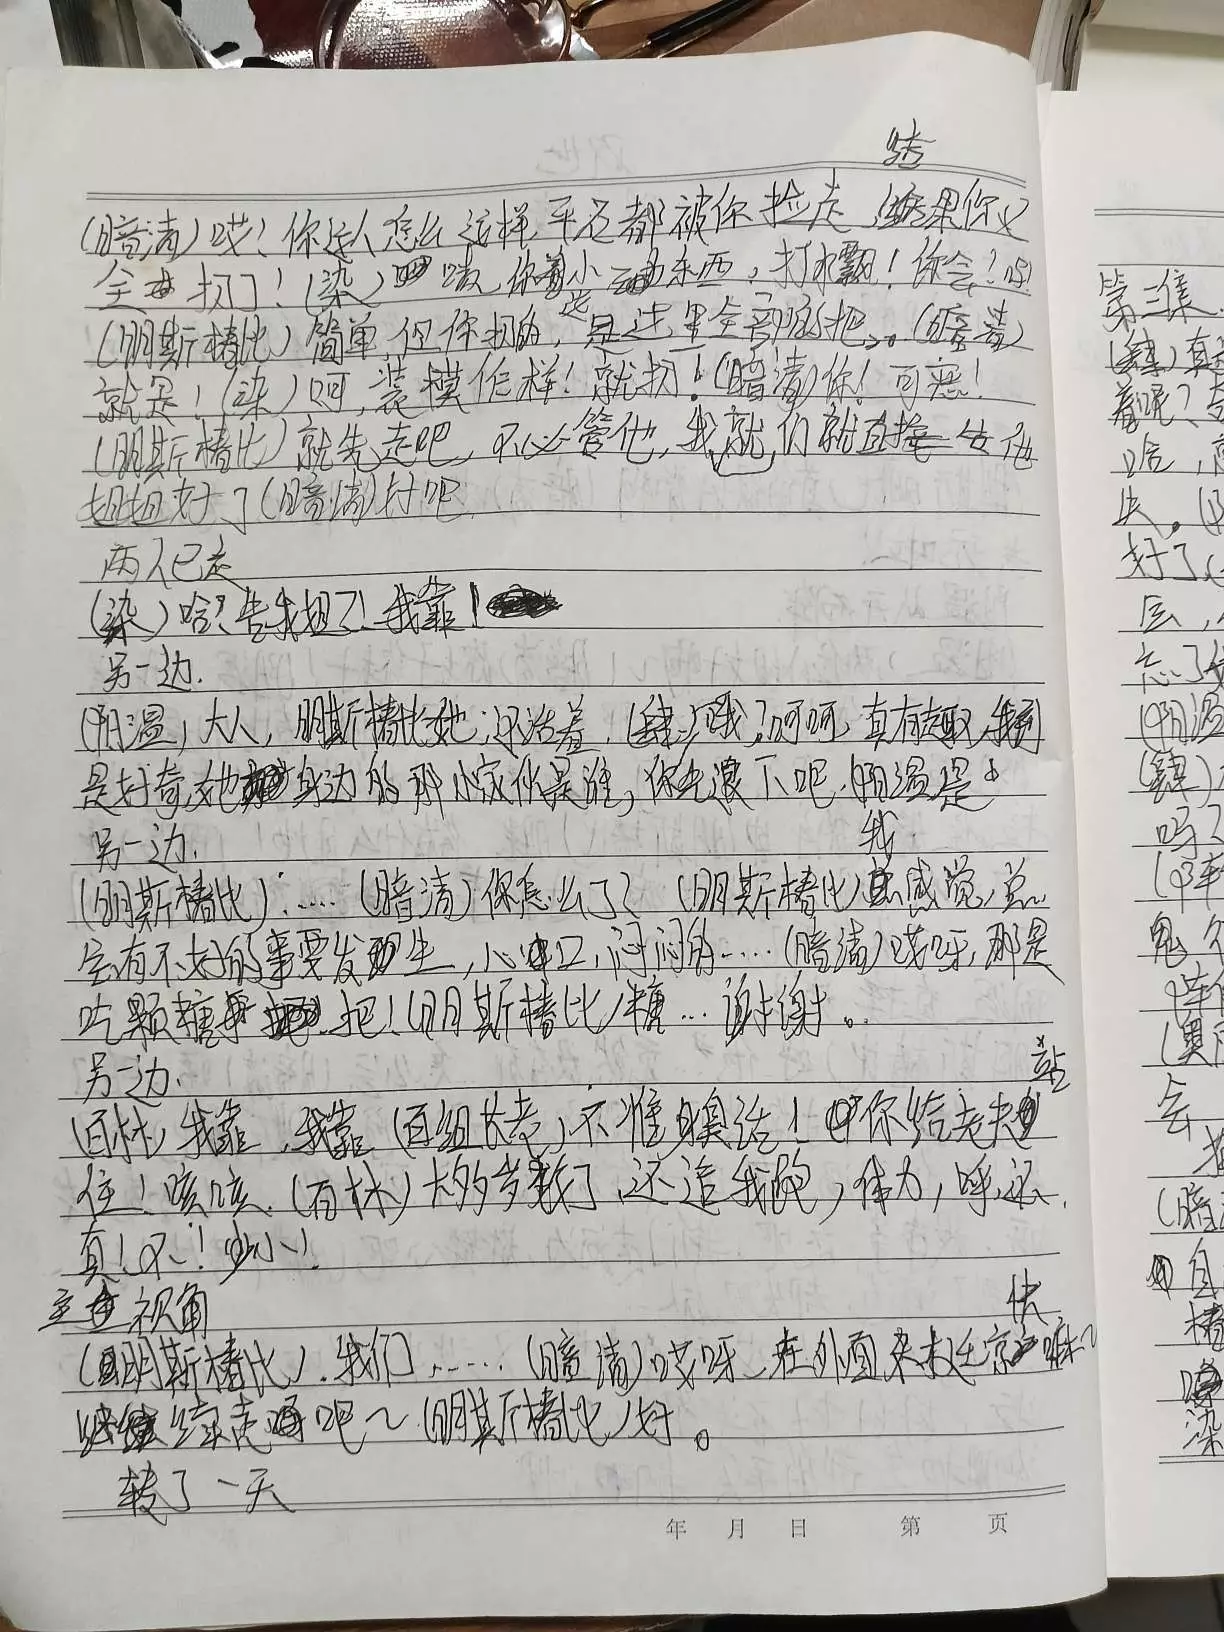 结
(暗清)哎!你这人怎么这样平石都被你捡走,结果你又
全扔了!(染)啧,你着小东西,打水飘!你会?哼!
(朋斯椿比)简单,但你扔的,是这里全部的把。。(暗清)
就是!(染)呵,装模作样!就扔!(暗清)你!可恶!
(朋斯椿比)就先走吧,不必管他,我们就直接告他
姐姐好了(暗清)好吧
两人已走
(染)哈?告我姐了!我靠!
另一边.
(阳温)大人,朋斯椿比她还活着.(肆)哦?呵呵,真有趣,我到
是好奇,她身边的那小家伙是谁,你先退下吧.(阳温)是
另一边.
我
(朋斯椿比)……(暗清)你怎么了?(朋斯椿比)感觉,总
会有不好的事要发生,心口,闷闷的……(暗清)哎呀,那是
吃颗糖把!(朋斯椿比)糖…谢谢。
另一边.
站
(百林)我靠,我靠(百组长老)不准臭话!你给老夫
住!咳咳.(百林)大多岁数了,还追我跑,体力,呼,还.
真!不!少!
主视角
快
(朋斯椿比).我们……(暗清)哎呀,在外面来
续走吧~(朋斯椿比)好。
转了一天
年 月 日 第 页
第三集
(肆)真
着呢?
哈,
失。
好了
会,
忘了
(阳温
(肆)
吗?
鬼
会
(暗
自
椿
染